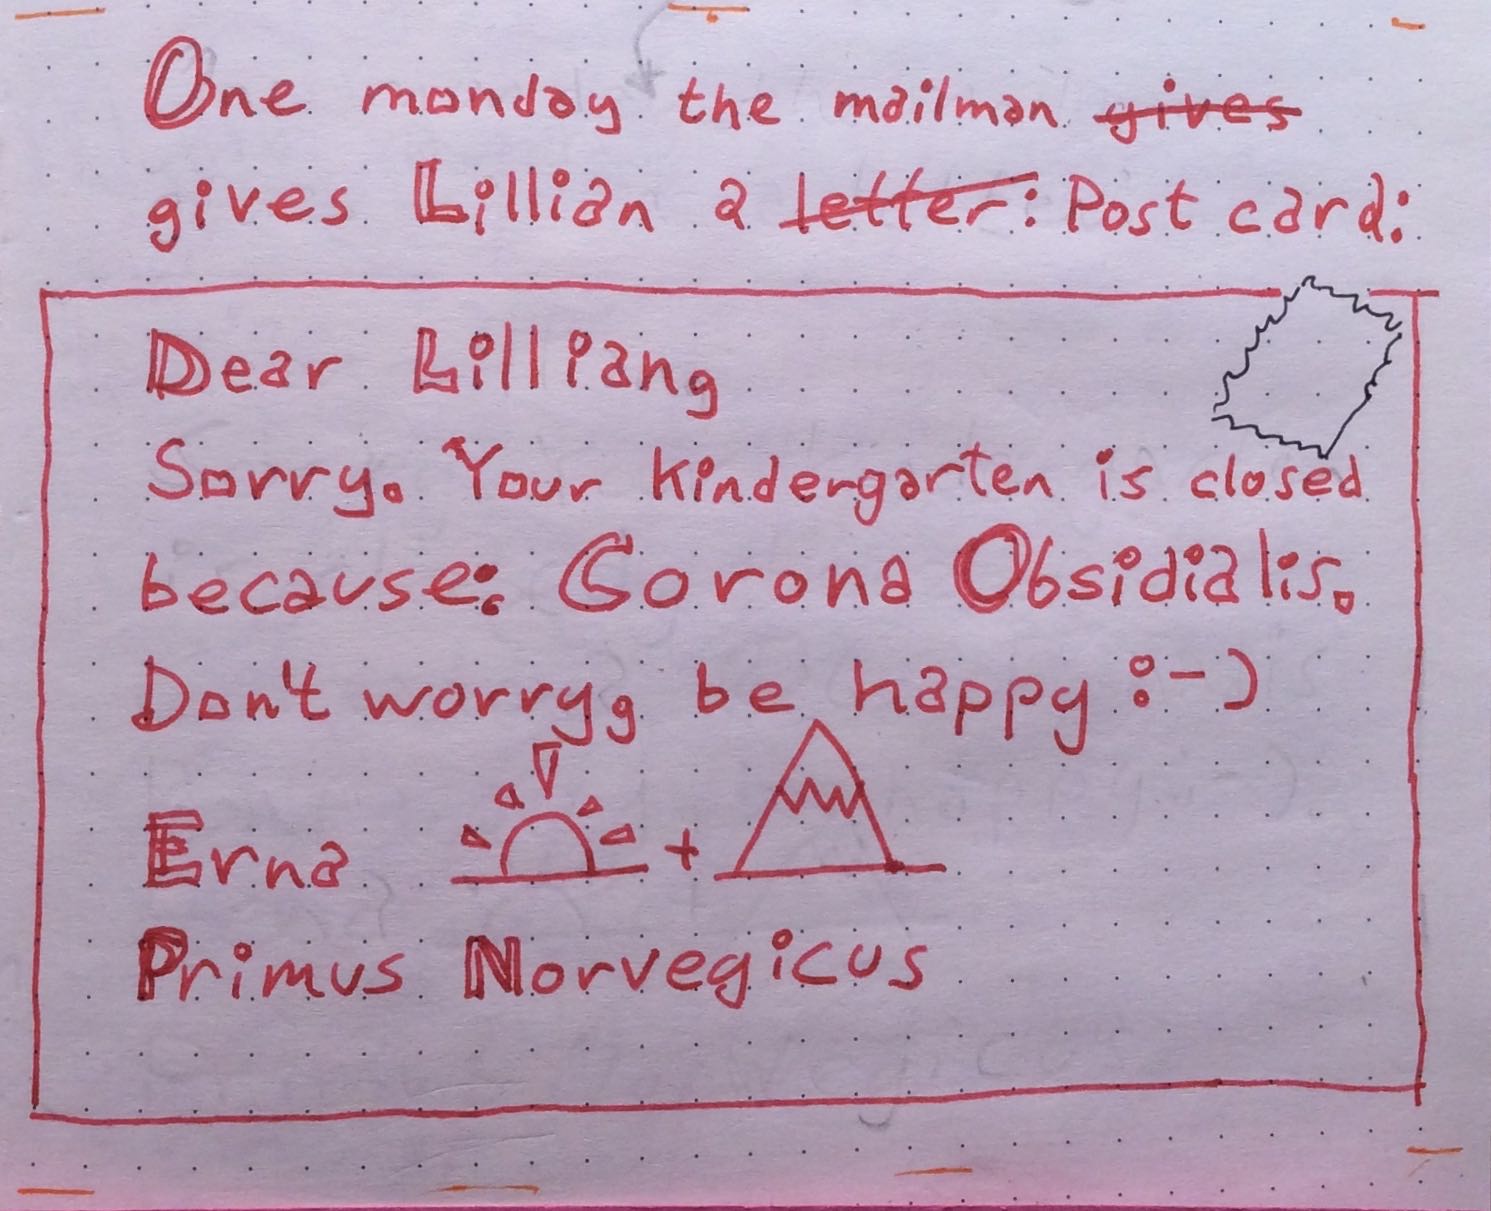 One monday the mailman gives
gives Lillian a letter: Post card:
Dear Lillian,
Sorry. Your kindergarten is closed
because: Corona Obsidialis.
Don't worry, be happy :-)
Erna +
Primus Norvegicus